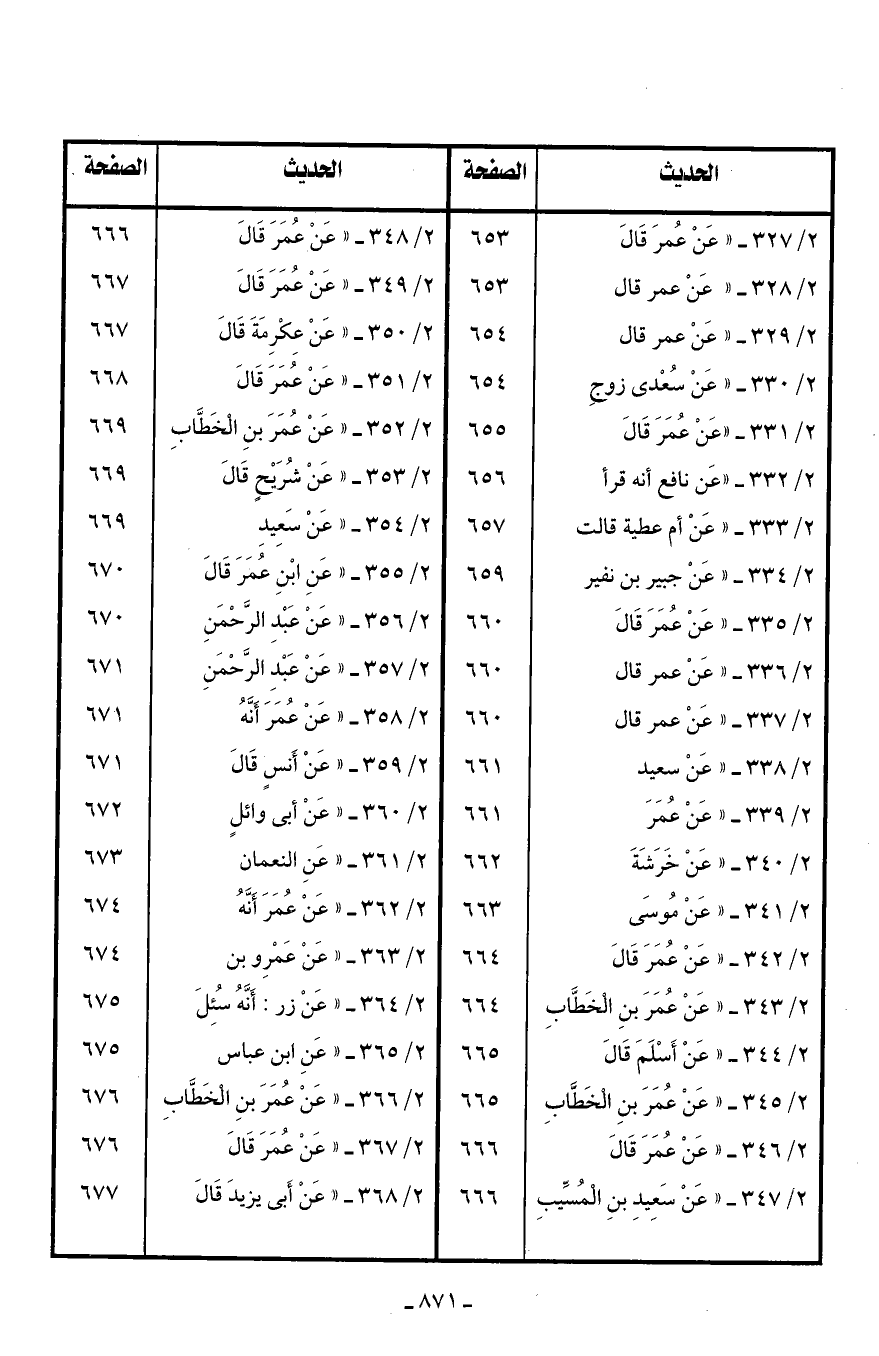 الحديث الصفحة الحديث الصفحة
٢/ ٣٢٧ ـ « عَنْ عُمرَ قَالَ ٦٥٣ ٢/ ٣٤٨ ـ « عَنْ عُمَرَ قَالَ ٦٦٦
٢/ ٣٢٨ ـ « عَنْ عمر قال ٦٥٣ ٢/ ٣٤٩ ـ « عَنْ عُمَرَ قَالَ ٦٦٧
٢/ ٣٢٩ ـ « عَنْ عمر قال ٦٥٤ ٢/ ٣٥٠ ـ « عَنْ عِكْرِمَةَ قَالَ ٦٦٧
٢/ ٣٣٠ ـ « عَنْ سُعْدى زوجِ ٦٥٤ ٢/ ٣٥١ ـ « عَنْ عُمَرَ قَالَ ٦٦٨
٢/ ٣٣١ ـ «عَنْ عُمَرَ قَالَ ٦٥٥ ٢/ ٣٥٢ ـ « عَنْ عُمَرَ بنِ الْخَطَّابِ ٦٦٩
٢/ ٣٣٢ ـ «عَن نافع أنه قرأ ٦٥٦ ٢/ ٣٥٣ ـ « عَنْ شُرَيْحٍ قَالَ ٦٦٩
٢/ ٣٣٣ ـ « عَنْ أم عطية قالت ٦٥٧ ٢/ ٣٥٤ ـ « عَنْ سَعِيدِ ٦٦٩
٢/ ٣٣٤ ـ « عَنْ جبير بن نفير ٦٥٩ ٢/ ٣٥٥ ـ « عَنِ ابْنِ عُمَرَ قَالَ ٦٧٠
٢/ ٣٣٥ ـ « عَنْ عُمَرَ قَالَ ٦٦٠ ٢/ ٣٥٦ ـ « عَنْ عَبْدِ الرَّحْمَنِ ٦٧٠
٢/ ٣٣٦ ـ « عَنْ عمر قال ٦٦٠ ٢/ ٣٥٧ ـ « عَنْ عَبْدِ الرَّحْمَنِ ٦٧١
٢/ ٣٣٧ ـ « عَنْ عمر قال ٦٦٠ ٢/ ٣٥٨ ـ « عَنْ عُمَرَ أَنَّهُ ٦٧١
٢/ ٣٣٨ ـ « عَنْ سعيد ٦٦١ ٢/ ٣٥٩ ـ « عَنْ أَنسٍ قَالَ ٦٧١
٢/ ٣٣٩ ـ « عَنْ عُمَرَ ٦٦١ ٢/ ٣٦٠ ـ « عَنْ أبى وائلٍ ٦٧٢
٢/ ٣٤٠ ـ « عَنْ خَرَشَةَ ٦٦٢ ٢/ ٣٦١ ـ « عَنِ النعمان ٦٧٣
٢/ ٣٤١ ـ « عَنْ مُوسَى ٦٦٣ ٢/ ٣٦٢ ـ « عَنْ عُمَرَ أَنَّهُ ٦٧٤
٢/ ٣٤٢ ـ « عَنْ عُمَرَ قَالَ ٦٦٤ ٢/ ٣٦٣ ـ « عَنْ عَمْرِو بن ٦٧٤
٢/ ٣٤٣ ـ « عَنْ عُمَرَ بنِ الْخَطَّابِ ٦٦٤ ٢/ ٣٦٤ ـ « عَنْ زر : أَنَّهُ سُئِلَ ٦٧٥
٢/ ٣٤٤ ـ « عَنْ أَسْلَمَ قَالَ ٦٦٥ ٢/ ٣٦٥ ـ « عَنِ ابن عباس ٦٧٥
٢/ ٣٤٥ ـ « عَنْ عُمَرَ بنِ الْخَطَّابِ ٦٦٥ ٢/ ٣٦٦ ـ « عَنْ عُمَرَ بنِ الْخَطَّابِ ٦٧٦
٢/ ٣٤٦ ـ « عَنْ عُمَرَ قَالَ ٦٦٦ ٢/ ٣٦٧ ـ « عَنْ عُمَرَ قَالَ ٦٧٦
٢/ ٣٤٧ ـ « عَنْ سَعِيدِ بنِ الْمُسَيِّبِ ٦٦٦ ٢/ ٣٦٨ ـ « عَنْ أبى يزيدَ قَالَ ٦٧٧
ـ ٨٧١ ـ